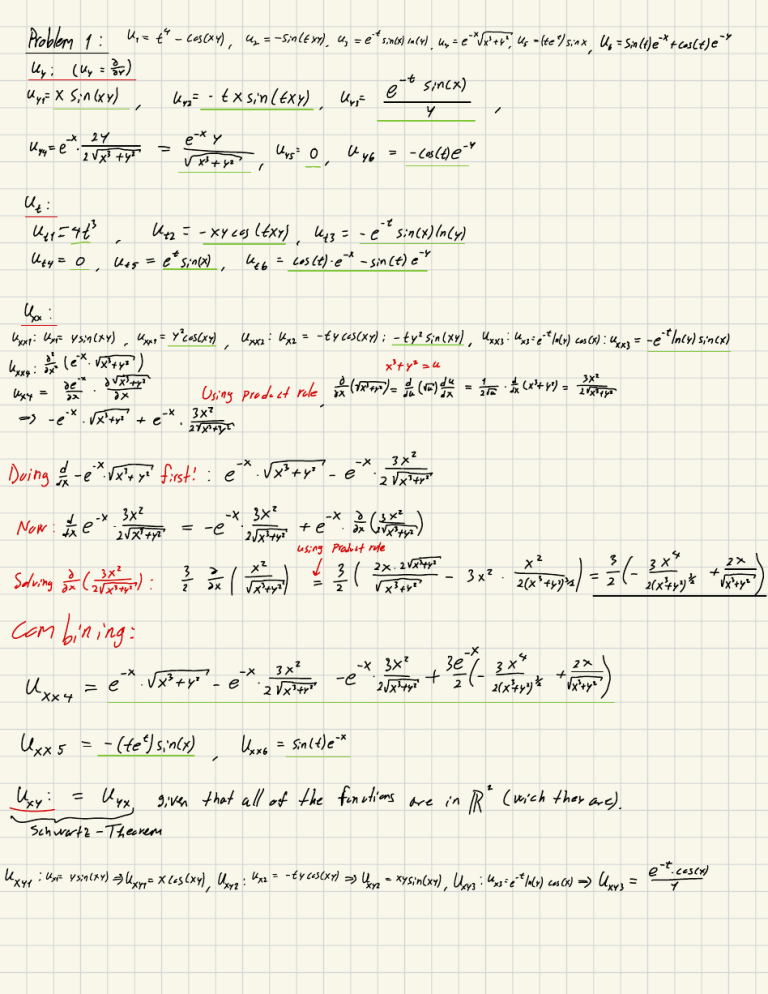 Problem 1: u₁ = t⁴ - cos(xy), u₂ = -sin(txy), u₃ = e^-t sin(x) ln(y), u₄ = e^-x √(x³+y²), u₅ = (te^t) sin x, u₆ = sin(t)e^-x + cos(t)e^-y
u_y: (u_y = ∂/∂y)
u_y1 = x sin(xy), u_y2 = -tx sin(txy), u_y3 = e^-t sin(x) / y,
u_y4 = e^-x · 2y / 2√(x³+y²) = e^-x y / √(x³+y²), u_y5 = 0, u_y6 = -cos(t)e^-y
u_t:
u_t1 = 4t³, u_t2 = -xy cos(txy), u_t3 = -e^-t sin(x) ln(y)
u_t4 = 0, u_t5 = e^t sin(x), u_t6 = cos(t)·e^-x - sin(t) e^-y
u_xx:
u_xx1: u_x1 = y sin(xy), u_xx1 = y² cos(xy), u_xx2: u_x2 = -ty cos(xy); -ty² sin(xy), u_xx3: u_x3 = e^-t ln(y) cos(x): u_xx3 = -e^-t ln(y) sin(x)
u_xx4: ∂²/∂x² (e^-x · √(x³+y²))
x³+y² = u
u_x4 = ∂e^-x/∂x · ∂√(x³+y²)/∂x Using product rule, ∂/∂x (√(x³+y²)) = d/du (√u) du/dx = 1/2√u · d/dx (x³+y²) = 3x² / 2√(x³+y²)
=> -e^-x · √(x³+y²) + e^-x · 3x² / 2√(x³+y²)
Doing d/dx -e^-x · √(x³+y²) first!: e^-x · √(x³+y²) - e^-x · 3x² / 2√(x³+y²)
Now: d/dx e^-x · 3x² / 2√(x³+y²) = -e^-x · 3x² / 2√(x³+y²) + e^-x · ∂/∂x (3x² / 2√(x³+y²))
using Product rule
Solving ∂/∂x (3x² / 2√(x³+y²)): 3/2 ∂/∂x (x² / √(x³+y²)) = 3/2 (2x·2√(x³+y²) / √(x³+y²) - 3x² · x² / 2(x³+y²)^3/2) = 3/2 (-3x⁴ / 2(x³+y²)^3/2 + 2x / √(x³+y²))
Combining:
u_xx4 = e^-x · √(x³+y²) - e^-x · 3x² / 2√(x³+y²) - e^-x · 3x² / 2√(x³+y²) + 3e^-x / 2 (-3x⁴ / 2(x³+y²)^3/2 + 2x / √(x³+y²))
u_xx5 = -(te^t) sin(x), u_xx6 = sin(t)e^-x
u_xy: = u_yx given that all of the functions are in ℝ² (wich they are).
Schwartz-Theorem
u_xy1: u_x1 = y sin(xy) => u_xy1 = x cos(xy), u_xy2: u_x2 = -ty cos(xy) => u_xy2 = xy sin(xy), u_xy3: u_x3 = e^-t ln(y) cos(x) => u_xy3 = e^-t · cos(x) / y